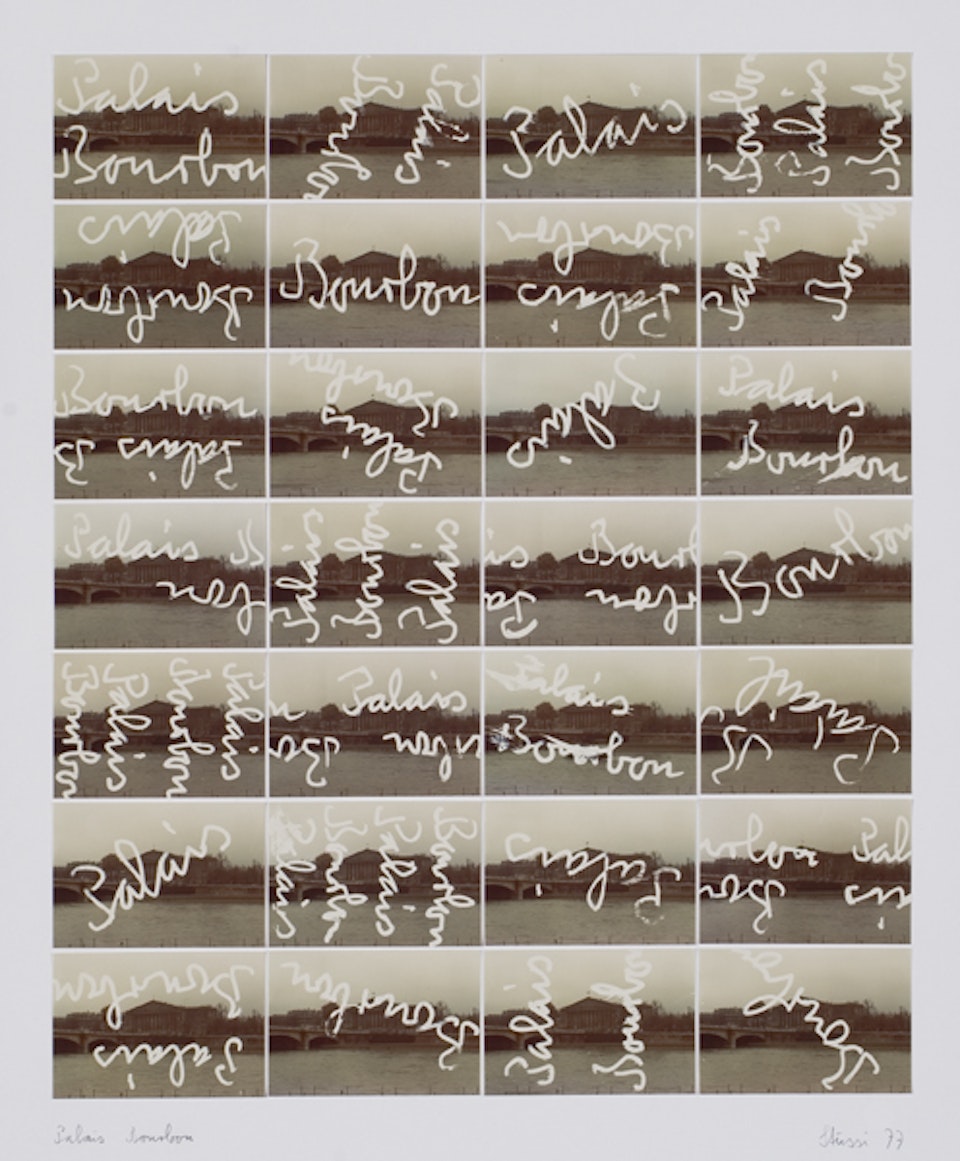 Palais
Bourbon
Bourbon
Palais
Palais
Bourbon
Palais
Bourbon
Palais
Bourbon
Bourbon
Bourbon
Palais
Palais
Bourbon
Bourbon
Palais
Bourbon
Palais
Palais
Palais
Bourbon
Palais
Palais
Bourbon
Palais
Bourbon
Bourbon
Palais
Bourbon
Palais
Palais
Palais
Bourbon
Palais
Palais
Bourbon
Palais
Bourbon
Palais
Bourbon
Palais
Bourbon
Palais
Bourbon
Palais Bourbon
Stüssi 77